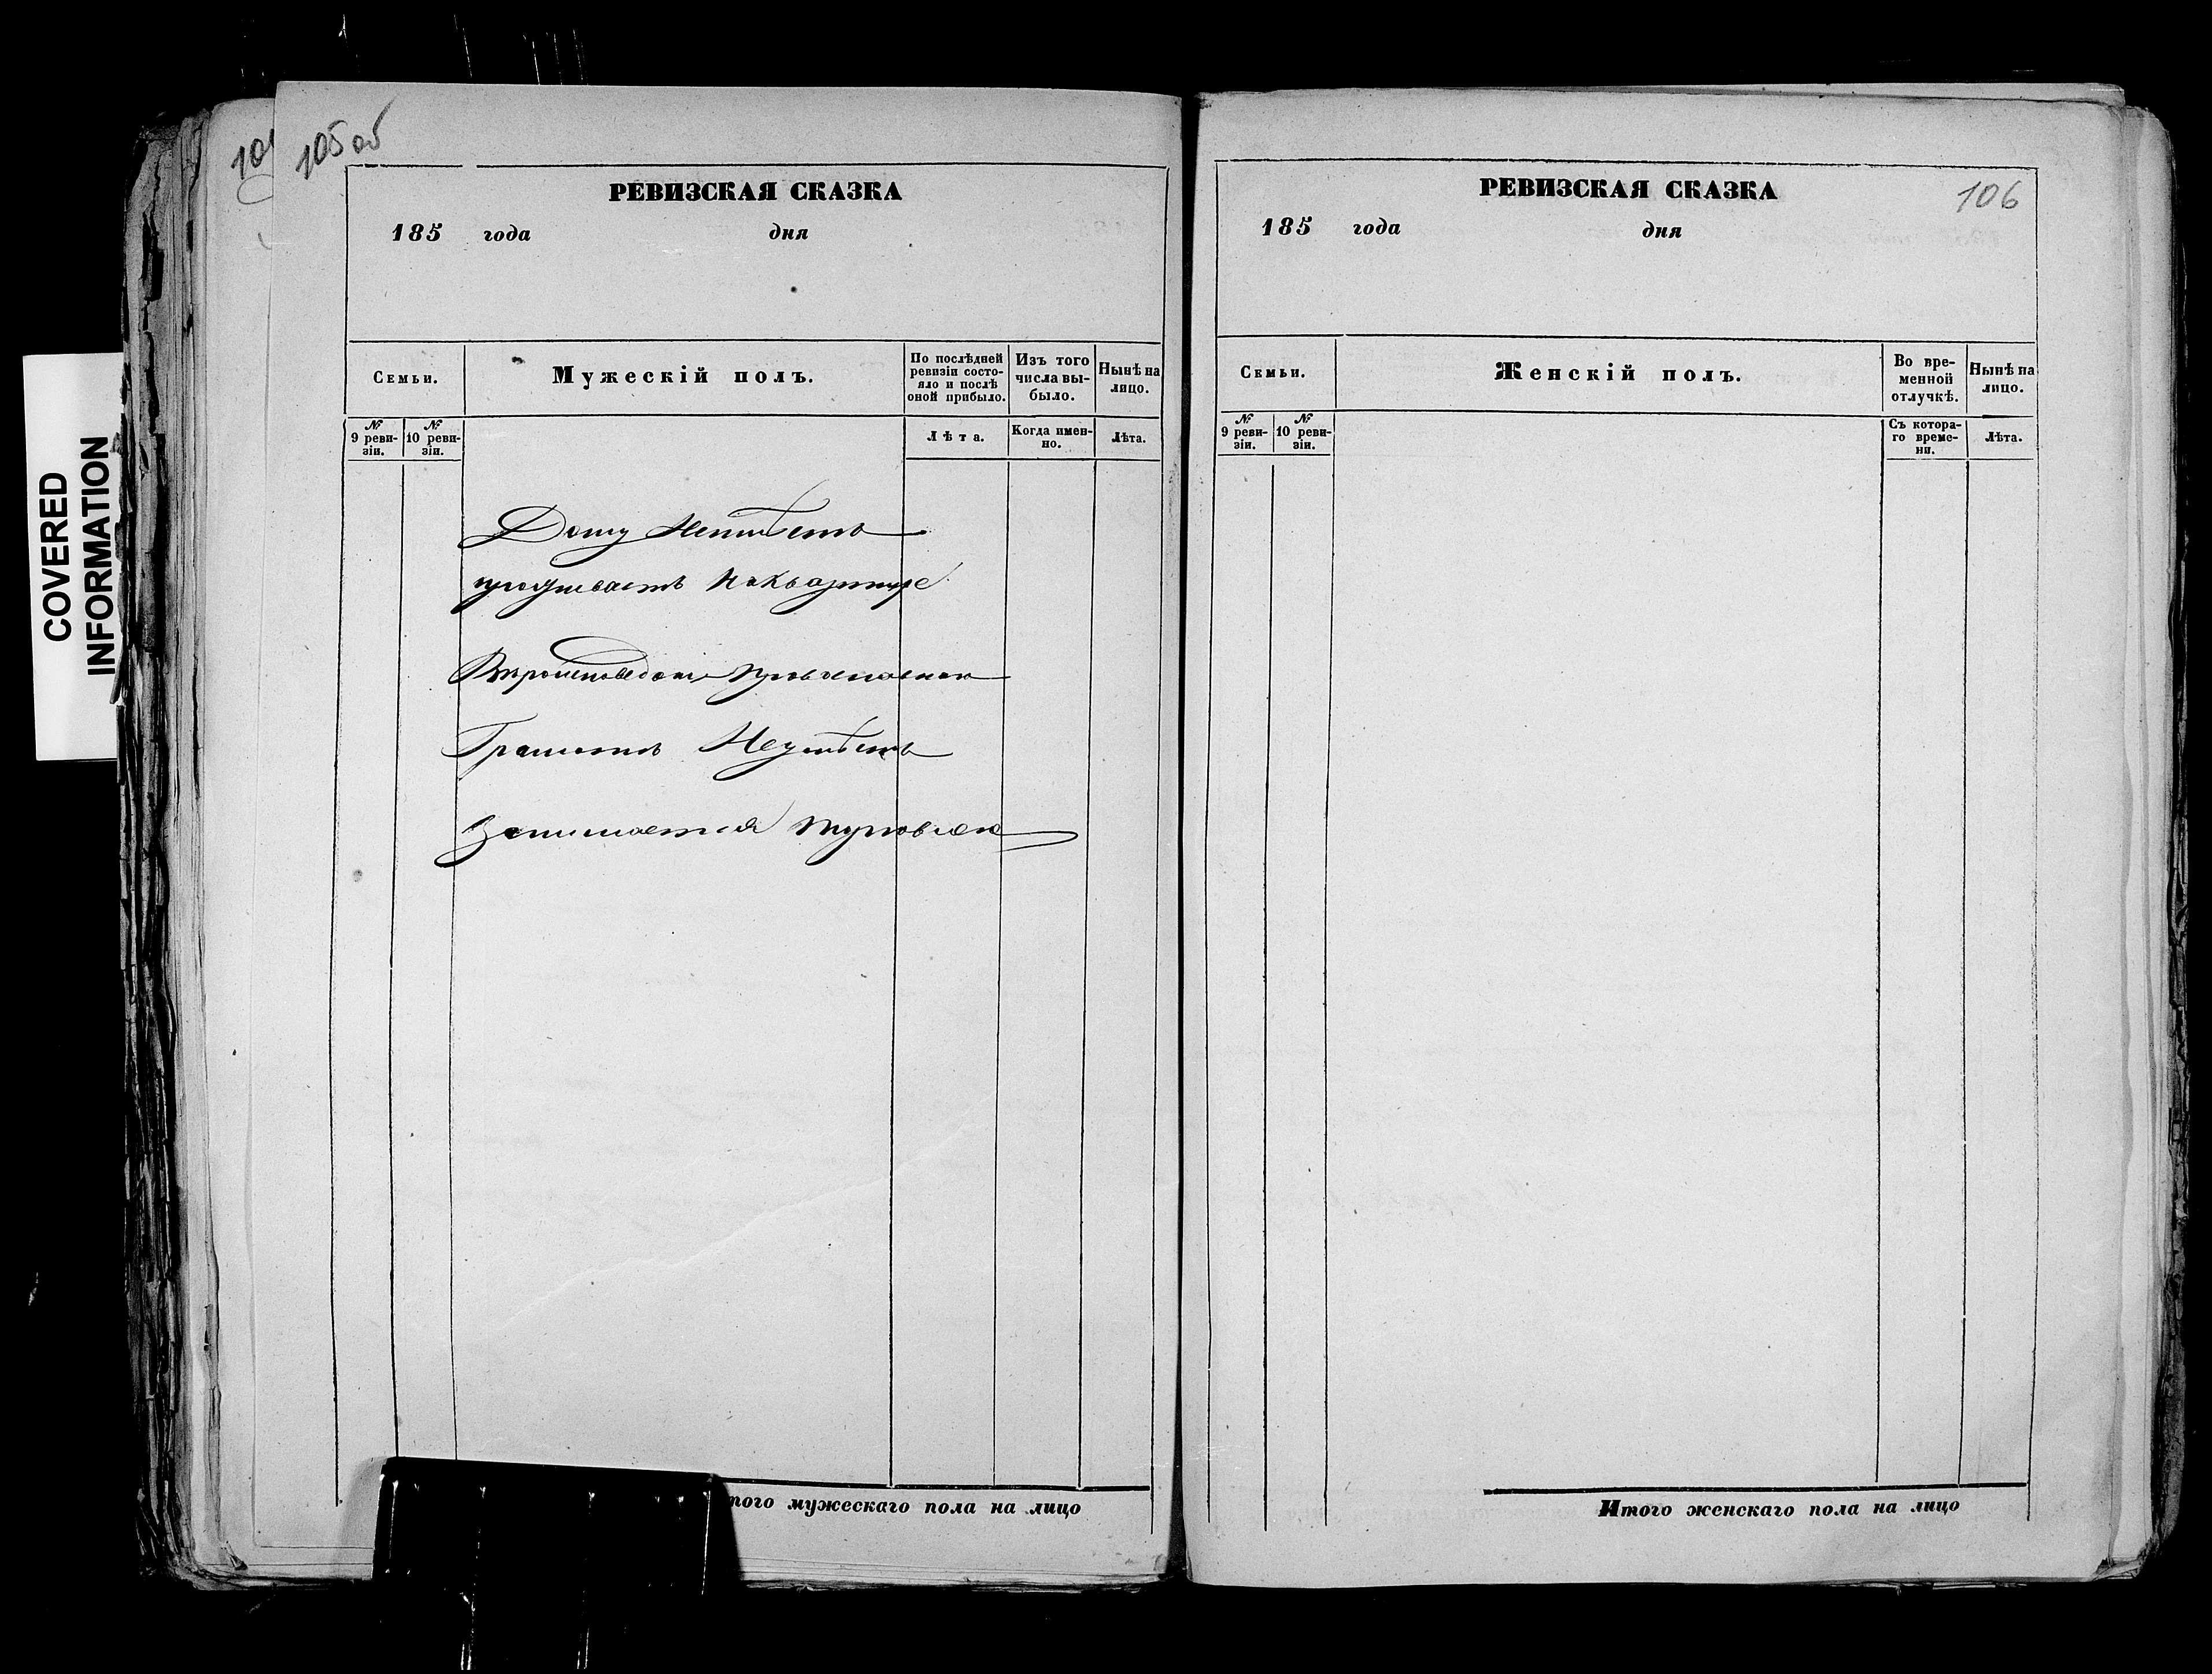 COVERED
INFORMATION
105 об
РЕВИЗСКАЯ СКАЗКА
185 года дня
Семьи.
Мужескій полъ.
По послѣдней ревизіи состояло и послѣ оной прибыло.
Изъ того числа выбыло.
Нынѣ на лицо.
№ 9 ревизіи.
№ 10 ревизіи.
Лѣта.
Когда именно.
Лѣта.
Дому Неимѣетъ
проживаетъ на квартире
Вѣроисповеданія православнаго
Грамотѣ Неумѣетъ
Занимается торговлею
того мужескаго пола на лицо
106
РЕВИЗСКАЯ СКАЗКА
185 года дня
Семьи.
Женскій полъ.
Во временной отлучкѣ.
Нынѣ на лицо.
№ 9 ревизіи.
№ 10 ревизіи.
Съ котораго времени.
Лѣта.
Итого женскаго пола на лицо